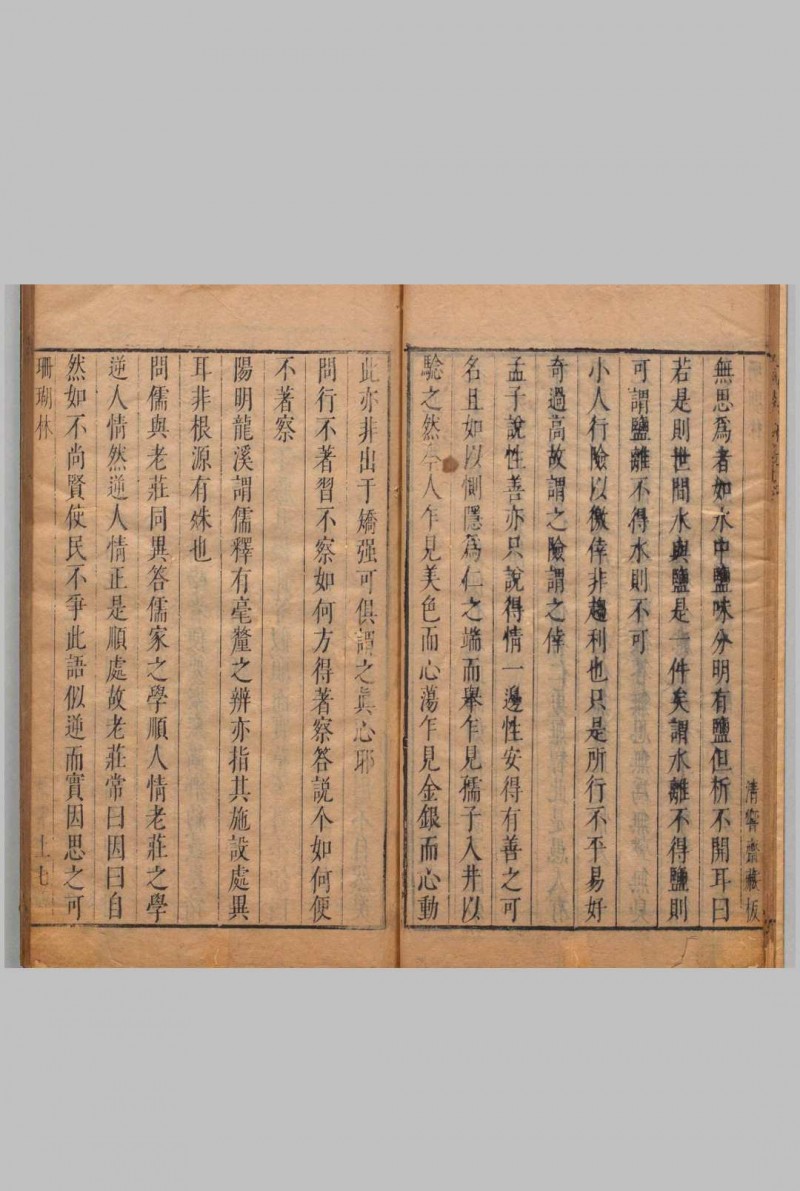 清響齋藏板
無思爲者如水中鹽味分明有鹽但析不開耳曰
若是則世間水與鹽是一件矣謂水離不得鹽則
可謂鹽離不得水則不可
小人行險以徼倖非趨利也只是所行不平易好
奇過高故謂之險謂之倖
孟子說性善亦只說得情一邊性安得有善之可
名且如以惻隱爲仁之端而舉乍見孺子入井以
驗之然今人乍見美色而心蕩乍見金銀而心動
此亦非出于矯强可俱謂之眞心耶
問行不著習不察如何方得著察答說个如何便
不著察
陽明龍溪謂儒釋有毫釐之辨亦指其施設處異
耳非根源有殊也
問儒與老莊同異答儒家之學順人情老莊之學
逆人情然逆人情正是順處故老莊常曰因曰自
然如不尚賢使民不爭此語似逆而實因思之可
珊瑚林
十七